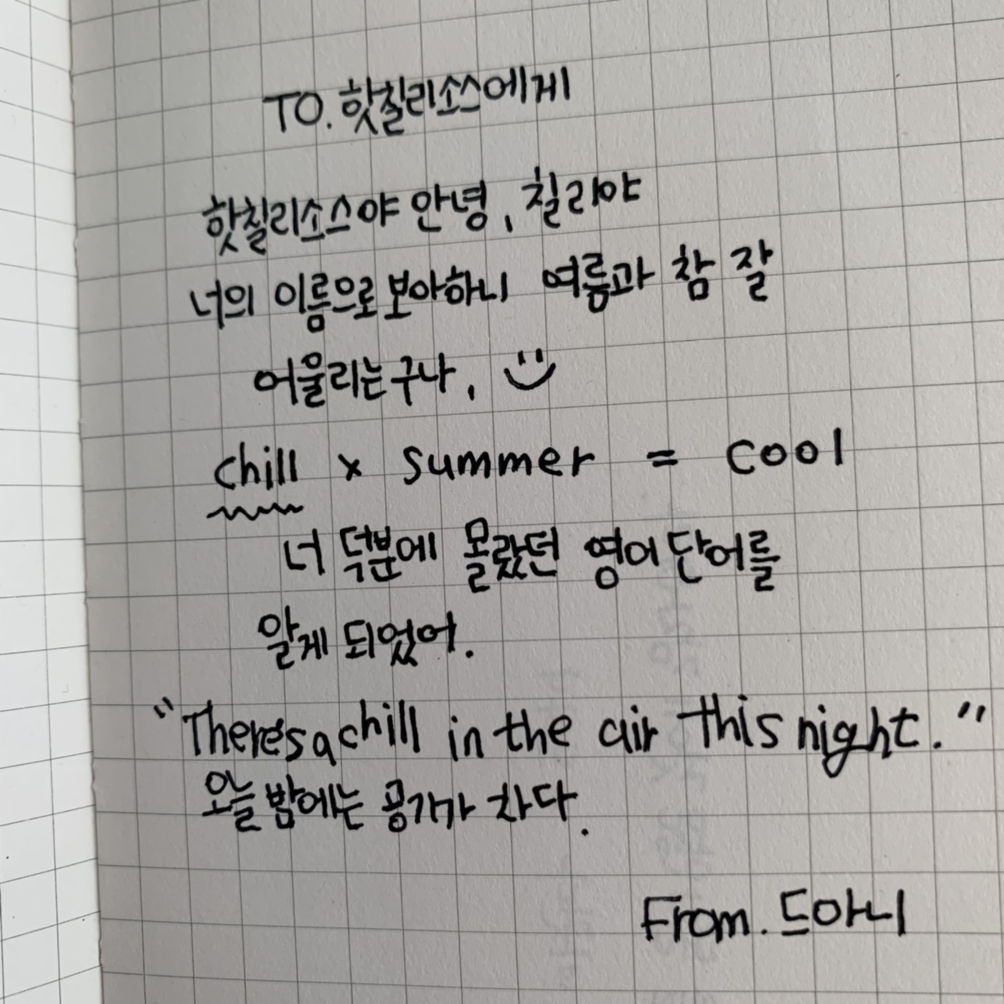 TO. 핫칠리소스에게
핫칠리소스야 안녕, 칠리야
너의 이름으로 보아하니 여름과 참 잘
어울리는구나,
chill × summer = cool
너 덕분에 몰랐던 영어단어를
알게 되었어.
"There's a chill in the air this night."
오늘 밤에는 공기가 차다.
From. 드아니